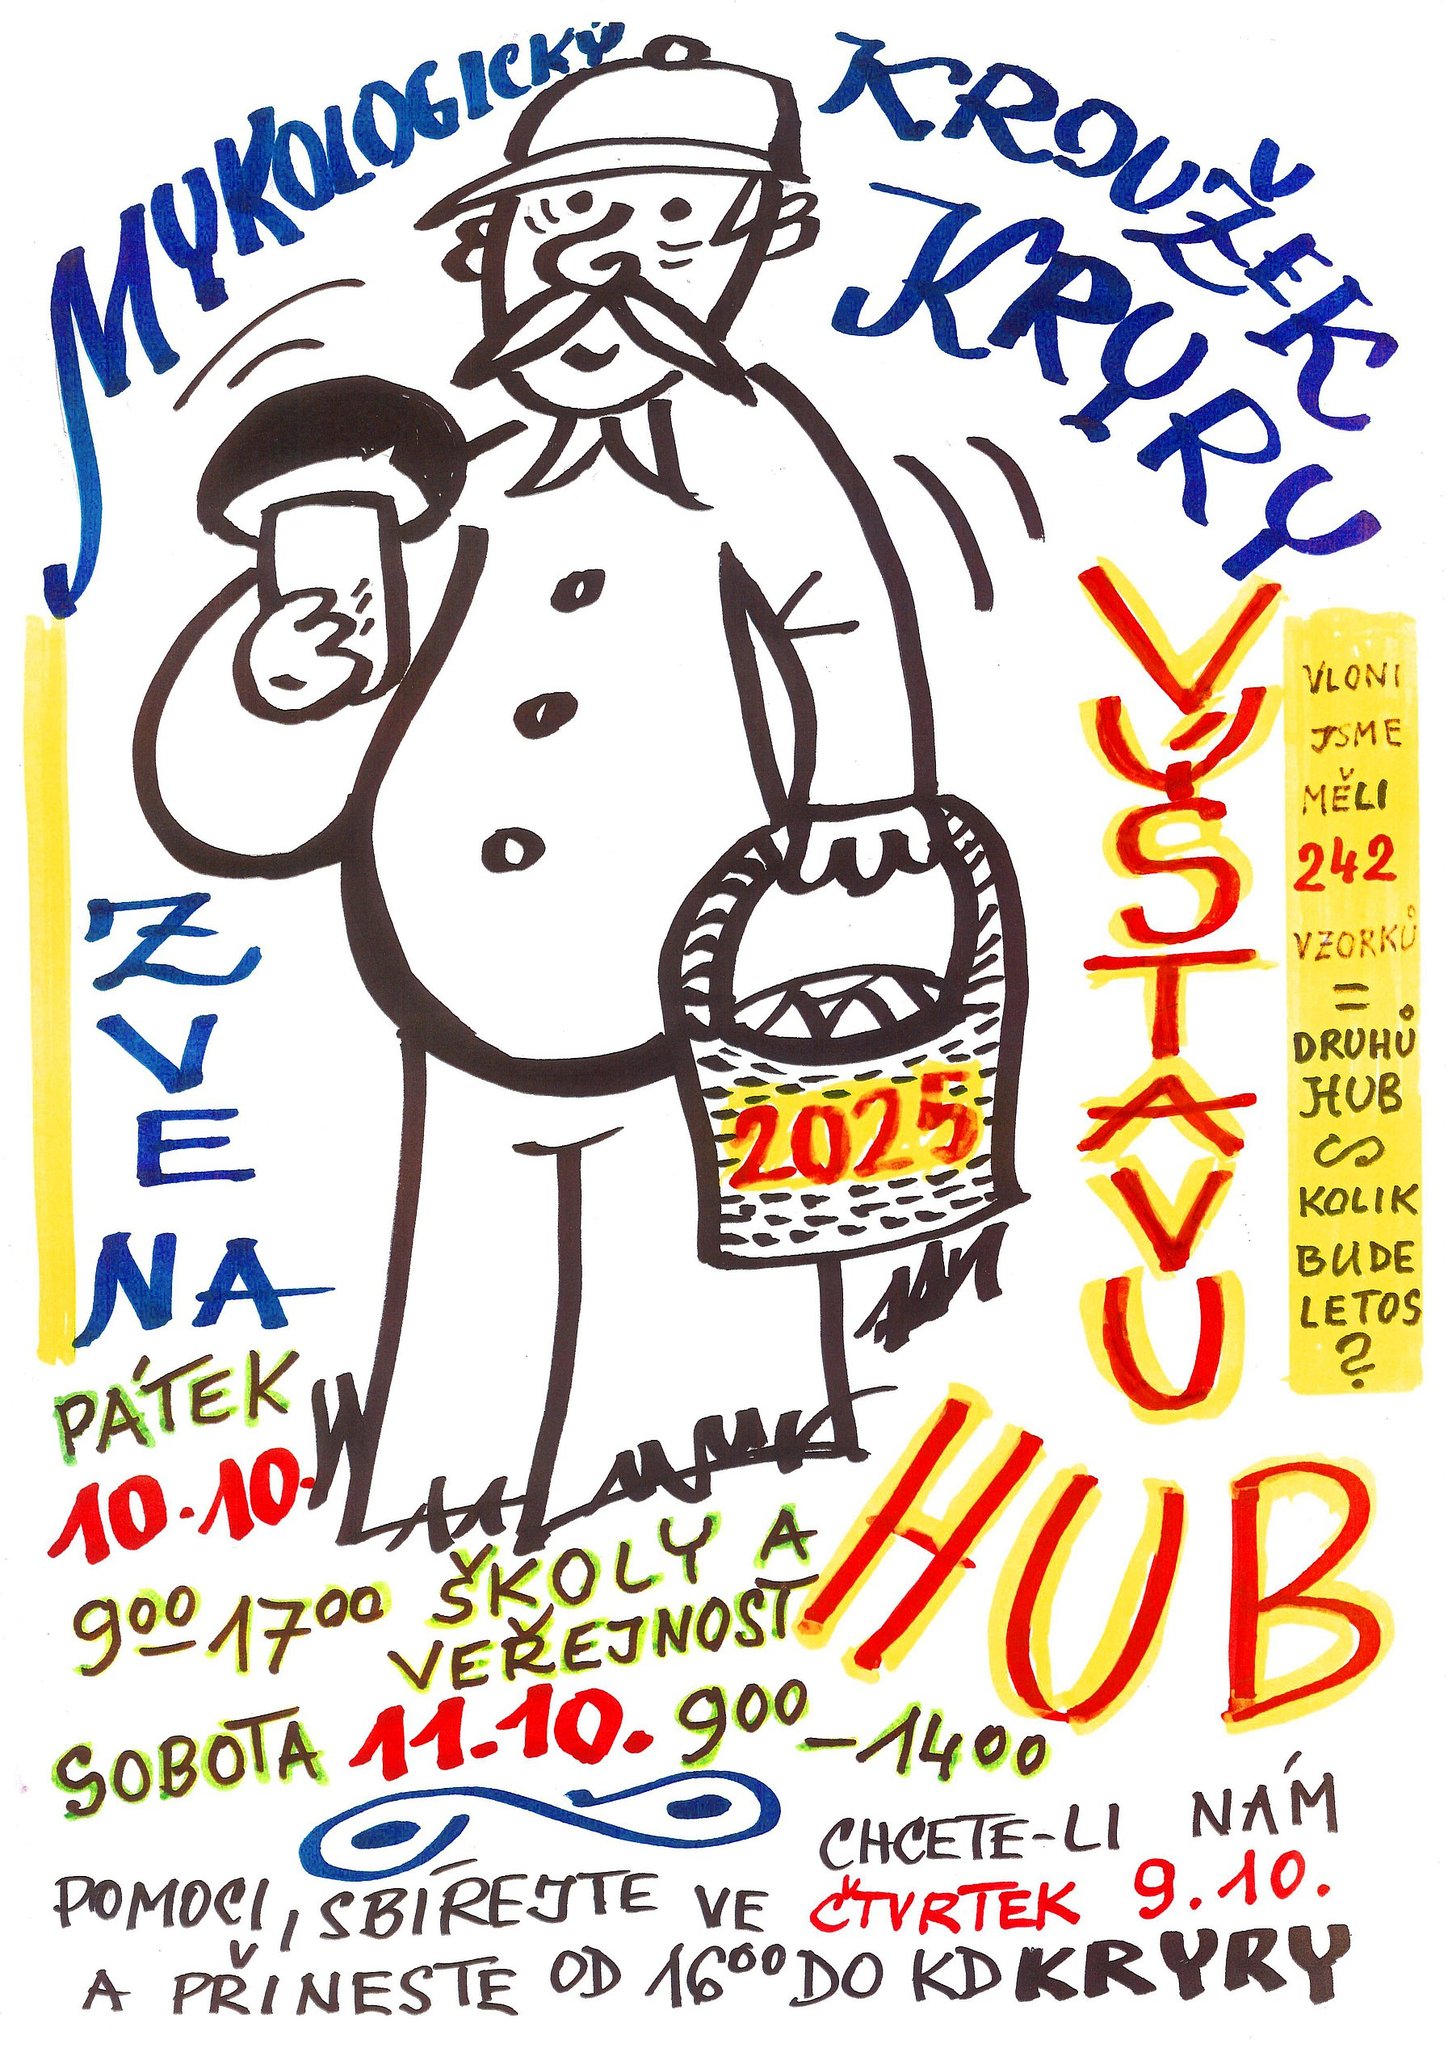 MYKOLOGICKÝ KROUŽEK
KRYRY
ZVE
NA
VÝSTAVU
HUB
2025
VLONI
JSME
MĚLI
242
VZORKŮ
=
DRUHŮ
HUB
~
KOLIK
BUDE
LETOS
?
PÁTEK
10.10.
9 00 17 00 ŠKOLY A
VEŘEJNOST
SOBOTA 11.10. 9 00 - 14 00
CHCETE-LI NÁM
POMOCI, SBÍREJTE VE ČTVRTEK 9.10.
A PŘINESTE OD 16 00 DO KD KRYRY